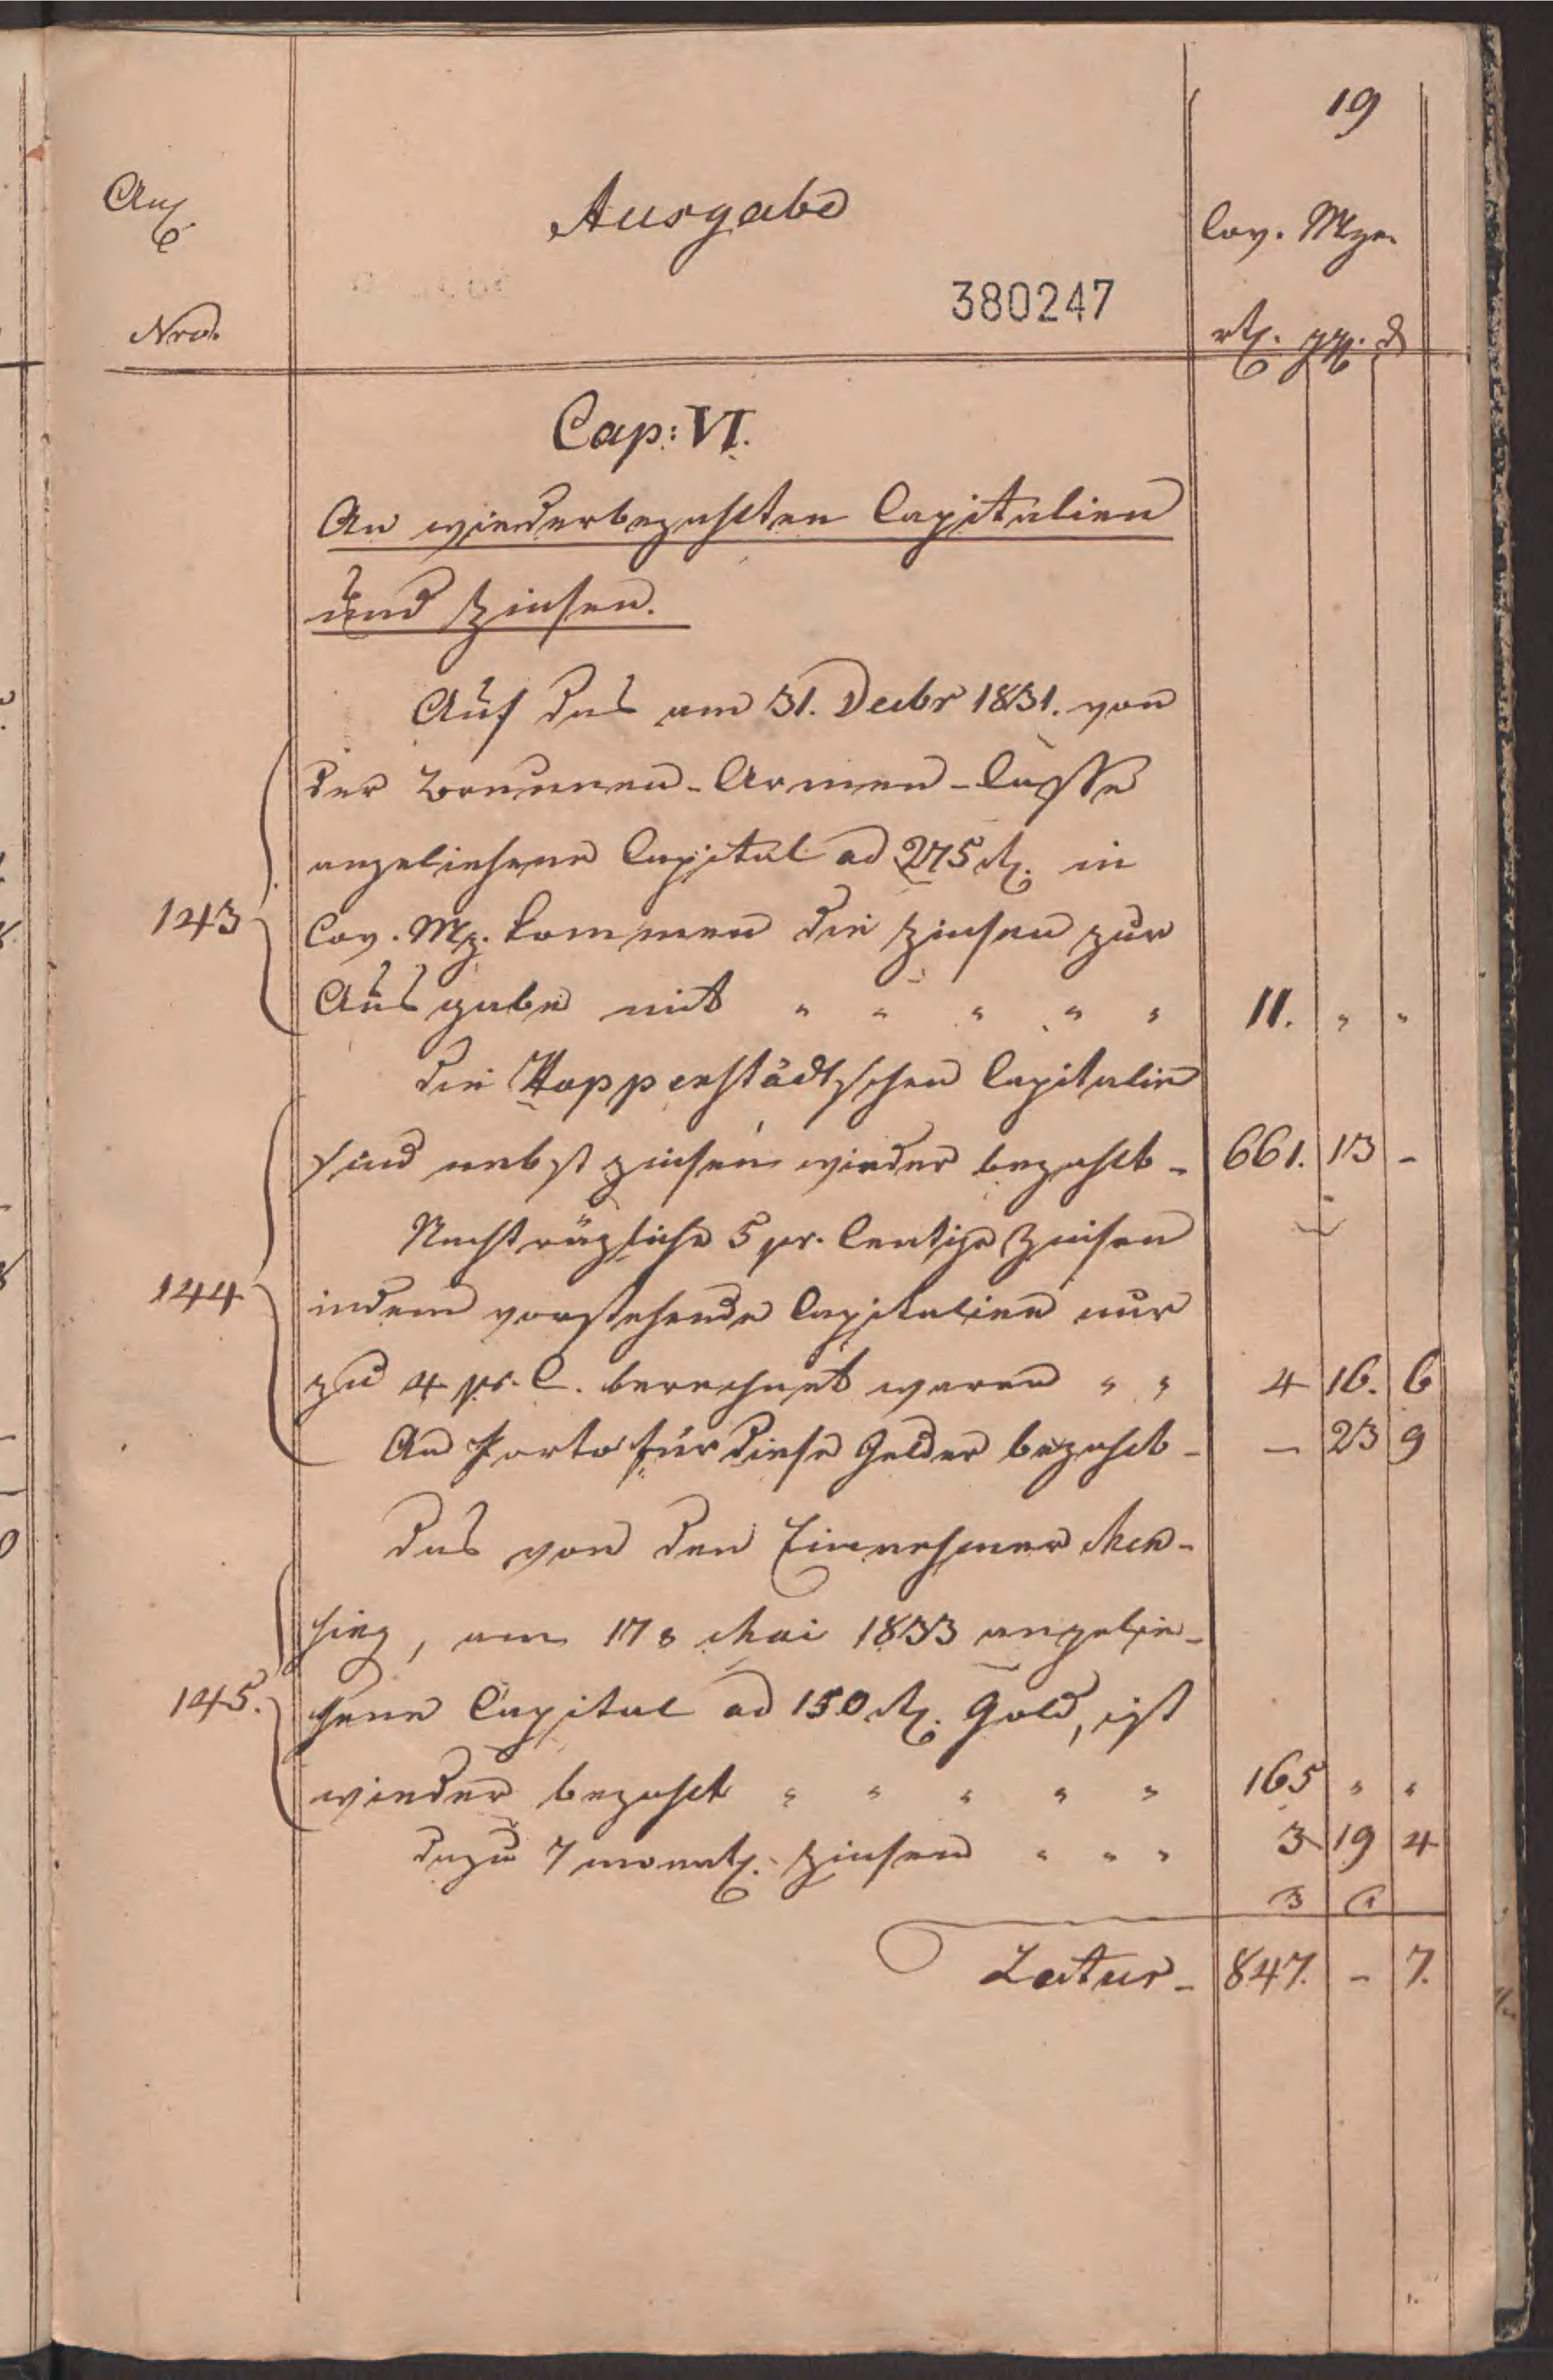 19
Anl. Ausgabe Cov. Mze.
380247
Nro. rtl. ggl. d
Cap: VI.
An wiederbezahlten Capitalien
und Zinsen.
Auf das am 31. Decbr 1831. von
der Brunnen-Armen-Casse
angeliehene Capital ad 275 rtl. in
143 Cov. Mz. kommen die Zinsen zur
Ausgabe mit " " " " " 11. " "
Die Hopperstädtschen Capitalien
sind nebst Zinsen wieder bezahlt - 661. 13 -
Nachträgliche 5 pr. Centige Zinsen
144 indem vorstehende Capitalien nur
zu 4 pr. C. berechnet waren " " 4 16. 6
An Porto für diese Gelder bezahlt - - 23 9
Das von den Einnehmer Men-
sing, am 17 Mai 1833 angelie-
145. hene Capital ad 150 rtl. Gold, ist
wieder bezahlt " " " " " 165 " "
dazu 7 monatl. Zinsen " " " 3 19 4
Latus - 847. - 7.